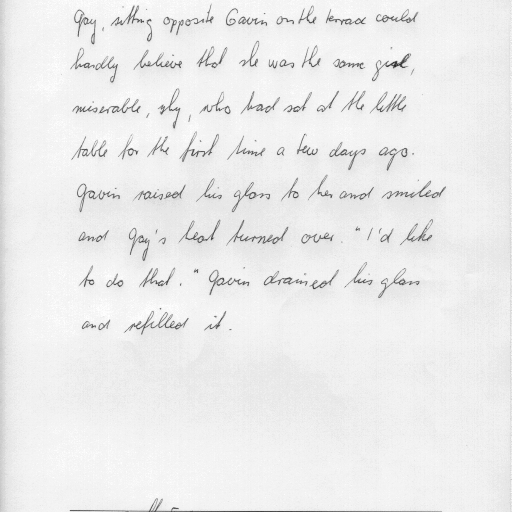 Gay, sitting opposite Gavin on the terrace could
hardly believe that she was the same girl,
miserable, shy, who had sat at the little
table for the first time a few days ago.
Gavin raised his glass to her and smiled
and Gay's heat turned over. "I'd like
to do that." Gavin drained his glass
and refilled it.